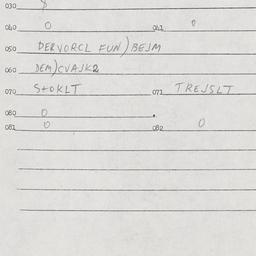 030 8
040 0 041 0
050 DERVORCL FUN)BEJM
060 DEM)CVAJK2
070 StOKLT 071 TREJSLT
080 0
081 0 082 0